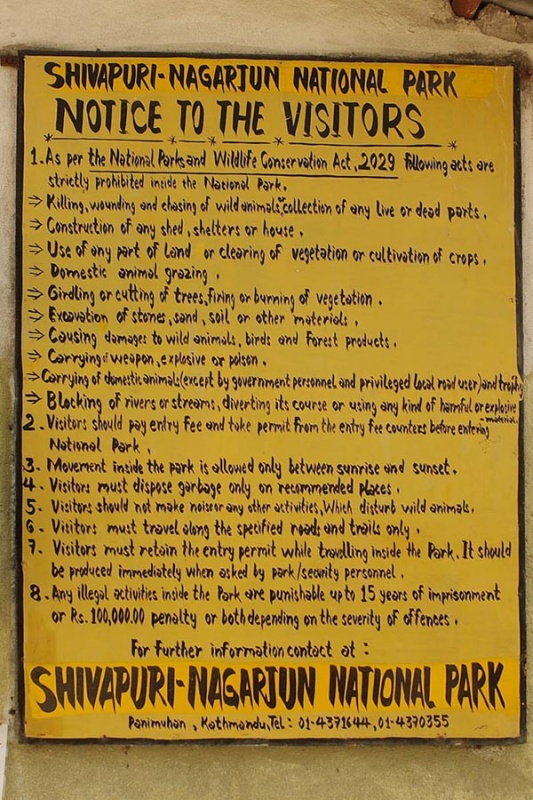 SHIVAPURI-NAGARJUN NATIONAL PARK
NOTICE TO THE VISITORS
1. As per the National Parks and Wildlife Conservation Act, 2029 following acts are
strictly prohibited inside the National Park.
⇒ Killing, wounding and chasing of wild animals, collection of any live or dead parts.
⇒ Construction of any shed, shelters or house.
⇒ Use of any part of land or clearing of vegetation or cultivation of crops.
⇒ Domestic animal grazing.
⇒ Girdling or cutting of trees, firing or burning of vegetation.
⇒ Excavation of stones, sand, soil or other materials.
⇒ Causing damages to wild animals, birds and forest products.
⇒ Carrying of weapon, explosive or poison.
⇒ Carrying of domestic animals (except by government personnel and privileged local road user) and trophy
⇒ Blocking of rivers or streams, diverting its course or using any kind of harmful or explosive
material.
2. Visitors should pay entry fee and take permit from the entry fee counters before entering
National Park.
3. Movement inside the park is allowed only between sunrise and sunset.
4. Visitors must dispose garbage only on recommended places.
5. Visitors should not make noise or any other activities, Which disturb wild animals.
6. Visitors must travel along the specified roads and trails only.
7. Visitors must retain the entry permit while travelling inside the Park. It should
be produced immediately when asked by park/security personnel.
8. Any illegal activities inside the Park are punishable up to 15 years of imprisonment
or Rs. 100,000.00 penalty or both depending on the severity of offences.
For further information contact at :
SHIVAPURI-NAGARJUN NATIONAL PARK
Panimuhan, Kathmandu, Tel: 01-4371644, 01-4370355